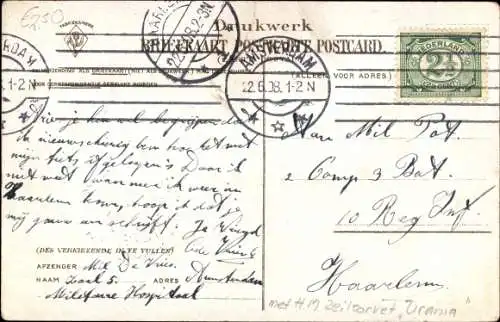 E2,50
Drukwerk
BRIEFKAART POSTKARTE POSTCARD.
(ALLEEN VOOR ADRES.)
NEDERLAND
2½
HAARLEM
22.6.08. 2-3N
AMSTERDAM
22.6.08. 1-2 N
RDAM
8. 1-2 N
je kan wel begrijpen dat
ik nieuwsgierig ben hoe het met
mijn fiets is. Daar ik
niet weet wanneer ik weer in
Haarlem kom, hoop ik dat je
mij gauw een schrijft. Je Vriend
de Vries
(DES VERKIEZENDE IN TE VULLEN)
AFZENDER Mil De Vries.
NAAM Zaal 5. ADRES Amsterdam
Militaire Hospitaal
Aan Mil Pot.
2 Comp 3 Bat.
10 Reg Inf.
Haarlem
met H.M. Zeilcorvet „Urania"